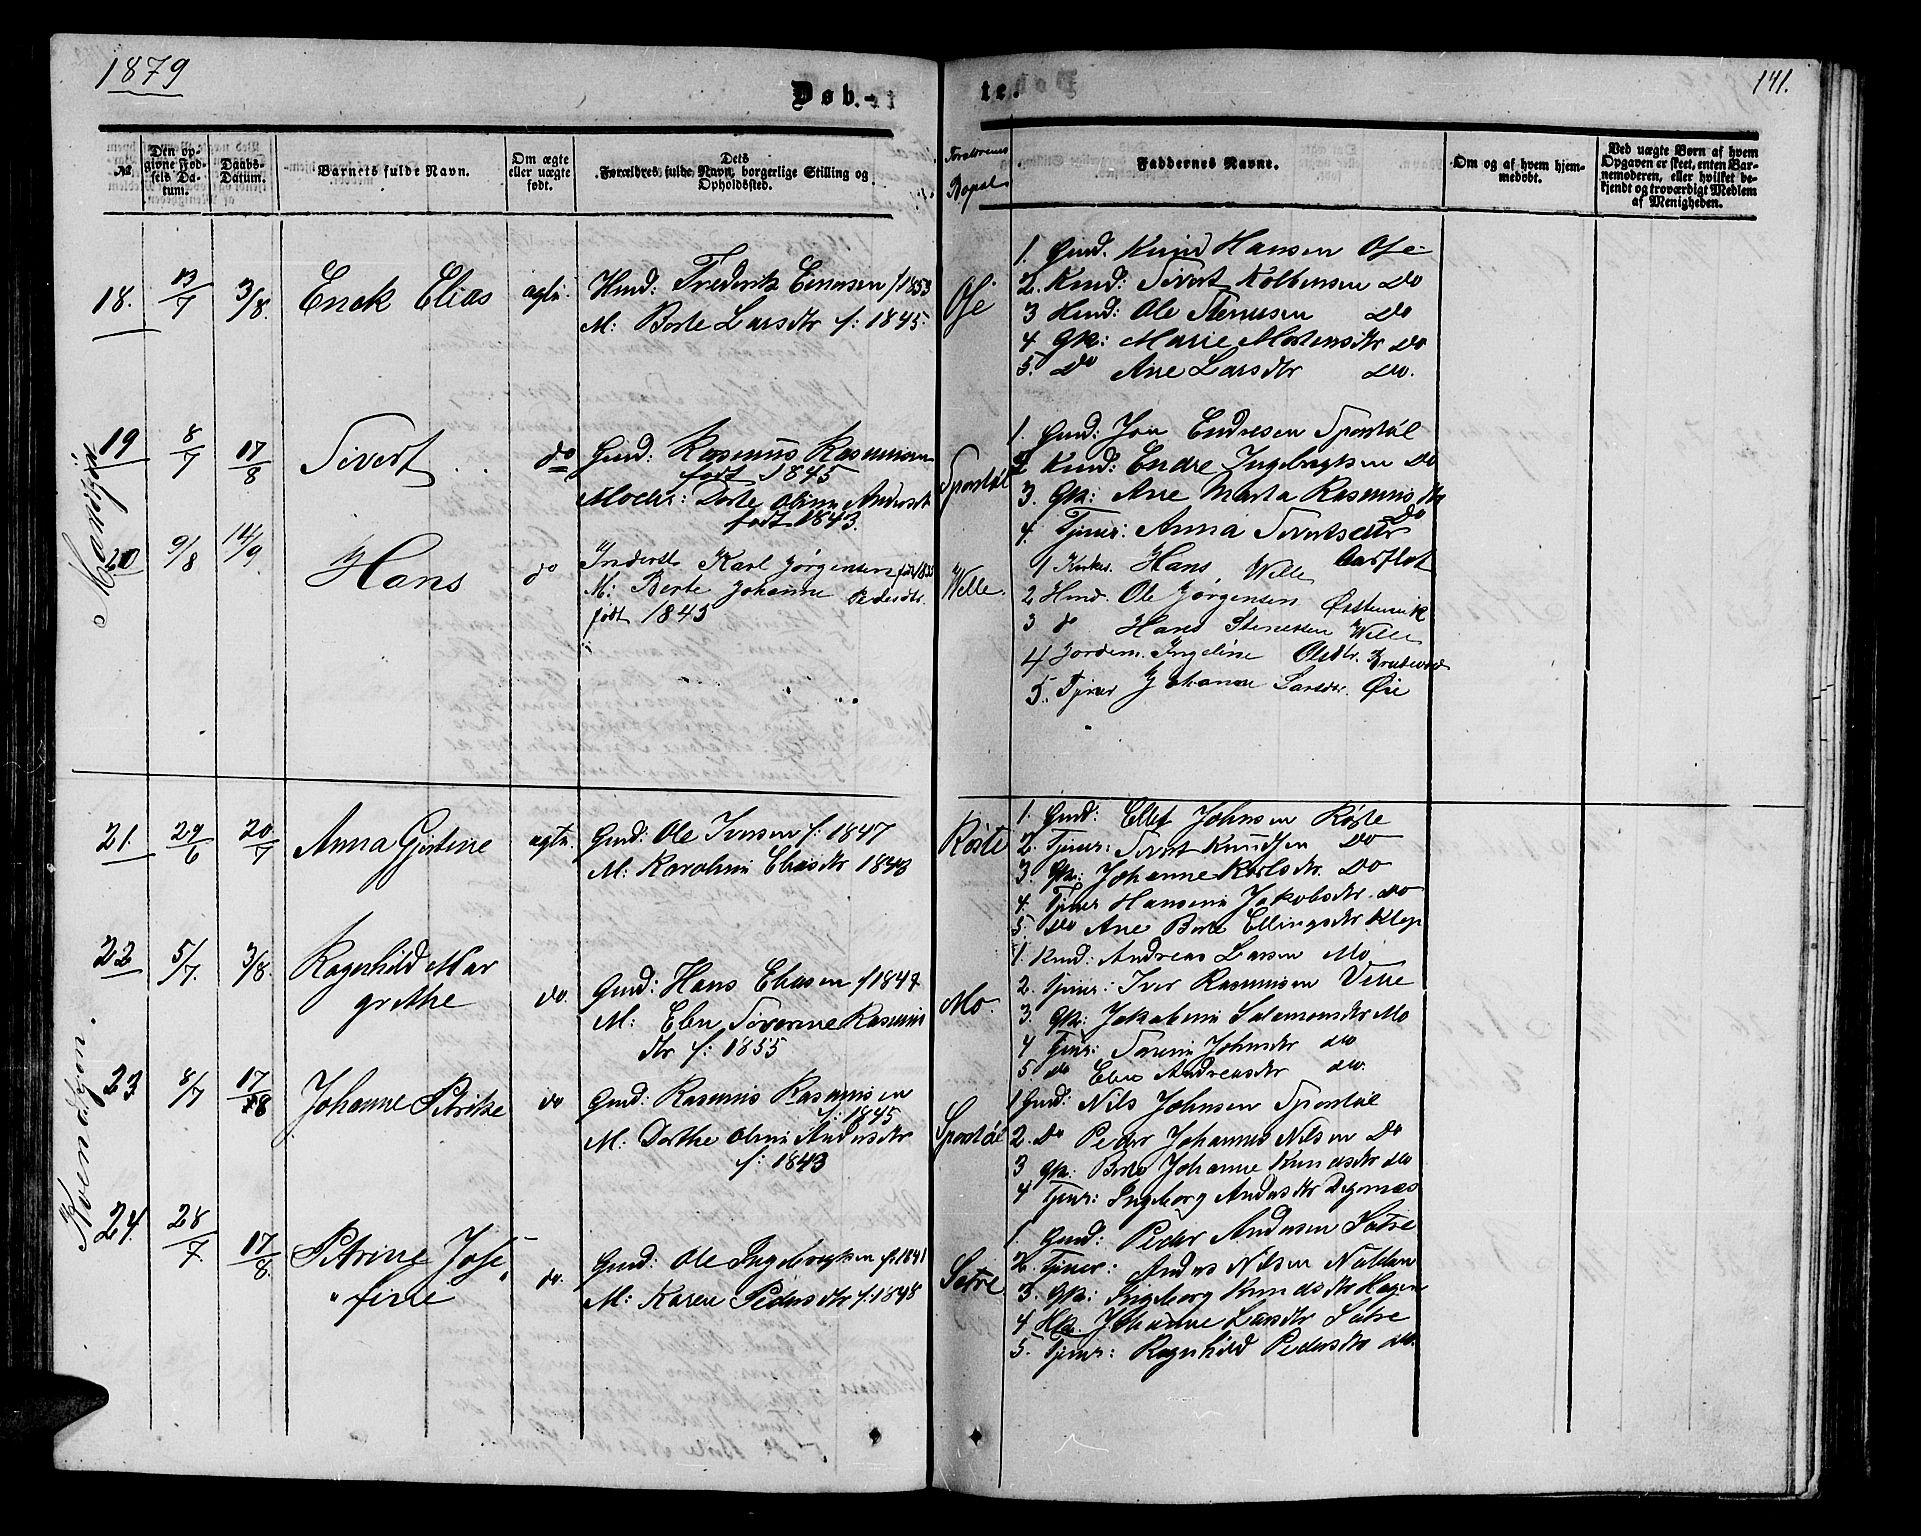 1879
Døb-
te.
141.
№
Den opgivne Fødsels Datum.
Daabs-Datum.
Barnets fulde Navn.
Om ægte eller uægte født.
Dets Forældres fulde Navn, borgerlige Stilling og Opholdssted.
Forældrenes Bopæl
Faddernes Navne.
Om og af hvem hjemmedøbt.
Ved uægte Børn af hvem Opgaven er skeet, enten Barnemoderen, eller hvilket bekjendt og troværdigt Medlem af Menigheden.
Mandkjøn
18. 13/7 3/8. Enok Elias ægte. Huusmd: Frederik f 1853
M: Berte Larsdtr f: 1845.
Øie
1. Gmd. Knud Hansen Øie
2. Kmd: Sivert Kolbensen Do
3 Hmd: Ole Stenesen Do
4 Gk: Marie Mortensdtr Do
5. Do Ane Larsdtr Do.
19 8/7 17/8 Sivert do Gmd: Rasmus Rasmussen
født 1845
Moder: Dorte Oline Andersdtr
født 1843.
Sponstøl
1. Gmd: Jon Endresen Sponstøl
2 Kmd: Endre Ingebrigtsen Do
3. Gk: Ane Marta Rasmusdtr
Do
4. Tjener: Anna Sivertsdtr
Aarflot
20 9/8 14/9 Hans do Inderst Karl Jørgensen
M: Berte Johanne Pedersdtr.
født 1845
Welle.
1 Hans Welle
2 Hmd. Ole Jørgensen Østenvik
3 do Hans Stenesen Welle
4 Jordem. Ingeline Olsdtr.
5. Tjener Johanne Larsdtr. Øie
Kvendkjøn.
21. 29/6 20/7 Anna Gjertine ægte. Gmd: Ole Iversen f: 1847
M: Karoline Eliasdtr 1843
Røste
1. Gmd: Ellef Johnsen Røste
2. Tjener: Sivert Knudsen Do
3. Gk: Johanne Karlsdtr. Do
4. Tjener Hansine Jakobsdtr. do
5. Do Ane Berte Ellingsdtr. Klep
22 5/7. 3/8. Ragnhild Mar
grethe do. Gmd: Hans Eliasen f 1847
M: Elen Severine Rasmus
dtr f: 1855
Mo.
1. Kmd: Andreas Larsen Mo
2. Tjener: Iver Rasmussen Velle
3. Gk: Jakobine Salamonsdtr Mo
4 Tjener: Johnsdtr do
5. do Elen Andreasdtr do.
23 8/7 17/8 Johanne Petrike do Gmd: Rasmus Rasmussen
f: 1845
M: Dorthe Oline Andersdtr
f: 1843
Sponstøl
1 Gmd: Nils Johnsen Sponstøl
2. Do Peder Johannes Nilsen Do
3 Gk. Berte Johanne Knudsdtr do
4 Tjener: Ingeborg Andersdtr
24. 28/7. 17/8. Petrine Jose
fine do. Gmd: Ole Ingebrigtsen f. 1841
M: Karen Pedersdtr f. 1848
Sætre
1. Gmd: Peder Andersen Sætre
2. Tjener: Anders Nilsen
3. Gk: Ingeborg Knudsdtr Hagen
4 Hk. Johanne Larsdtr Sætre
5. Tjener: Ragnhild Pedersdtr do.